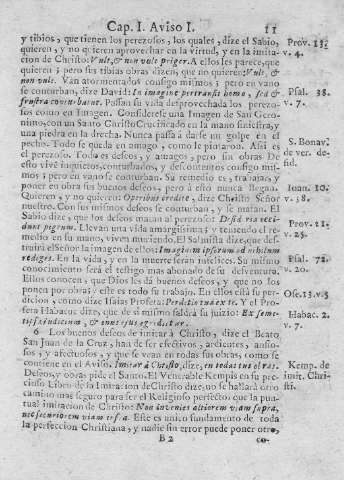 Cap. I. Aviso I. 11
y tibios, que tienen los perezosos, los quales, dize el Sabio, Prov. 13.
quieren, y no quieren aprovechar en la virtud, y en la imita- v. 4.
cion de Christo: Vult, & non vult piger. A ellos les parece, que
quieren; pero sus tibias obras dizen, que no quieren: Vult, &
non vult. Van atormentados consigo mismos; pero en vano
se conturban, dize David: In imagine pertransit homo, sed & Psal. 38.
frustra conturbatur. Passan su vida desprovechada los perezo- v. 7.
sos como en Imagen. Considerese una Imagen de San Gero-
nimo, con un Santo Christo Crucificado en la mano siniestra, y
una piedra en la derecha. Nunca passa à darse un golpe en el
pecho. Todo se queda en amago, como le pintaron. Assi es S. Bonav.
el perezoso. Todo es deseos, y amagos, pero sin obras De de ver. de
esto vive inquietos, conturbados, y descontentos consigo mis- desid.
mos; pero en vano se conturban. Su remedio es, trabajar, y
poner en obra sus buenos deseos, pero à esto nunca llegan. Ioan. 10.
Quieren, y no quieren: Operibus credite, dize Christo Señor v. 38.
nuestro. Con sus mismos deseos se conturban, y se matan. El
Sabio dize, que los deseos matan al perezoso: Desideria occi- Prov. 21.
dunt pigrum. Llevan una vida amarguissima; y teniendo el re- v. 25.
medio en su mano, viven muriendo. El Salmista dize, que des-
truirà el Señor la imagen de ellos: Imaginem ipsorum ad nihilum
rediges. En la vida, y en la muerte seràn infelices. Su mismo Psal. 72.
conocimiento serà el testigo mas abonado de su desventura. v. 20.
Ellos conocen, que Dios les dà buenos deseos, y que no los
ponen por obras; y este es todo su trabajo. En ellos està su per- Ose. 13. v. 9
dicion, como dize Isaias Profeta: Perditio tua ex te. Y el Pro-
feta Habacuc dize, que de si mismo saldrà su juizio: Ex seme- Habac. 2.
tipso judicium, & onus ejus egredietur. v. 7.
6 Los buenos deseos de imitar à Christo, dize el Beato
San Juan de la Cruz, han de ser efectivos, ardientes, ansio-
sos, y afectuosos, y que se vean en todas sus obras, como se
contiene en el Aviso. Imitar à Christo, dize, en todas tus obras. Kemp. de
Deseos, y obras pide el Santo. El Venerable Kempis en su pre- imit. Chri-
cioso Libro de la Imitacion de Christo dize, no se hallarà otro sti.
camino mas seguro para ser el Religioso perfecto; que la pun-
tual imitacion de Christo: Non invenies altiorem viam supra,
nec securiorem viam infra. Este es unico fundamento de toda
la perfeccion Christiana, y nadie sin error puede poner otro,
B 2 co-